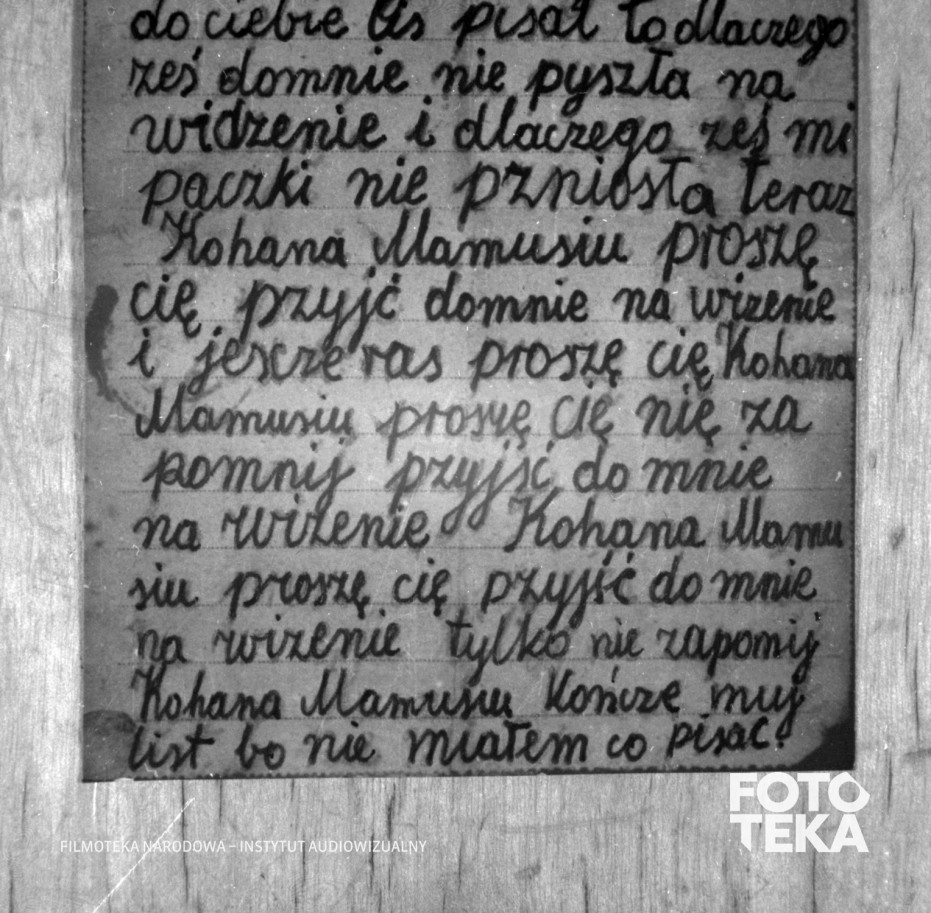 do ciebie lis pisał to dlaczego
ześ domnie nie pyszła na
widzenie i dlaczego ześ mi
paczki nie pzniosła teraz
Kohana Mamusiu proszę
cię przyjć domnie na wizenie
i jescze ras proszę cię Kohana
Mamusiu proszę cię nię za
pomnij przyjść do mnie
na wizenie Kohana Mamu
siu proszę cię przyjść do mnie
na wizenie tylko nie zapomij
Kohana Mamusiu Kończe muj
list bo nie miałem co pisać.
FOTO
TEKA
FILMOTEKA NARODOWA – INSTYTUT AUDIOWIZUALNY